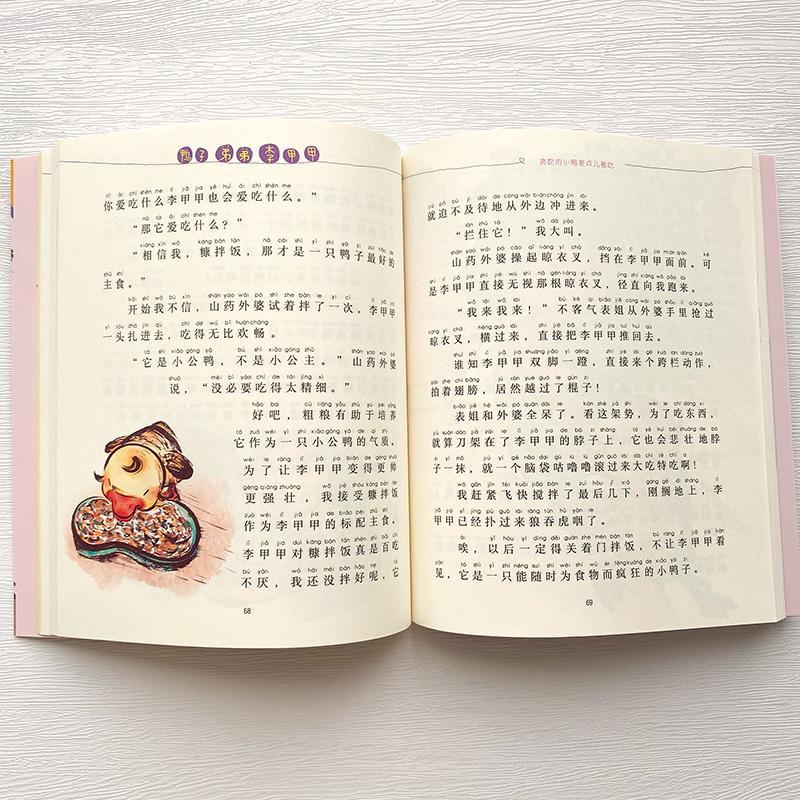 鸭子弟弟李甲甲
你爱吃什么李甲甲也会爱吃什么。”
“那它爱吃什么？”
“相信我，糠拌饭，那才是一只鸭子最好的
主食。”
开始我不信，山药外婆试着拌了一次，李甲甲
一头扎进去，吃得无比欢畅。
“它是小公鸭，不是小公主。”山药外婆
说，“没必要吃得太精细。”
好吧，粗粮有助于培养
它作为一只小公鸭的气质，
为了让李甲甲变得更帅
更强壮，我接受糠拌饭
作为李甲甲的标配主食。
李甲甲对糠拌饭真是百吃
不厌，我还没拌好呢，它
68
贪吃的小鸭差点儿被吃
就迫不及待地从外边冲进来。
“拦住它！”我大叫。
山药外婆操起晾衣叉，挡在李甲甲面前。可
是李甲甲直接无视那根晾衣叉，径直向我跑来。
“我来我来！”不客气表姐从外婆手里抢过
晾衣叉，横过来，直接把李甲甲推回去。
谁知李甲甲双脚一蹬，直接来个跨栏动作，
拍着翅膀，居然越过了棍子！
表姐和外婆全呆了。看这架势，为了吃东西，
就算刀架在了李甲甲的脖子上，它也会悲壮地脖
子一抹，就一个脑袋咕噜噜滚过来大吃特吃啊！
我赶紧飞快搅拌了最后几下，刚搁地上，李
甲甲已经扑过来狼吞虎咽了。
唉，以后一定得关着门拌饭，不让李甲甲看
见，它是一只能随时为食物而疯狂的小鸭子。
69